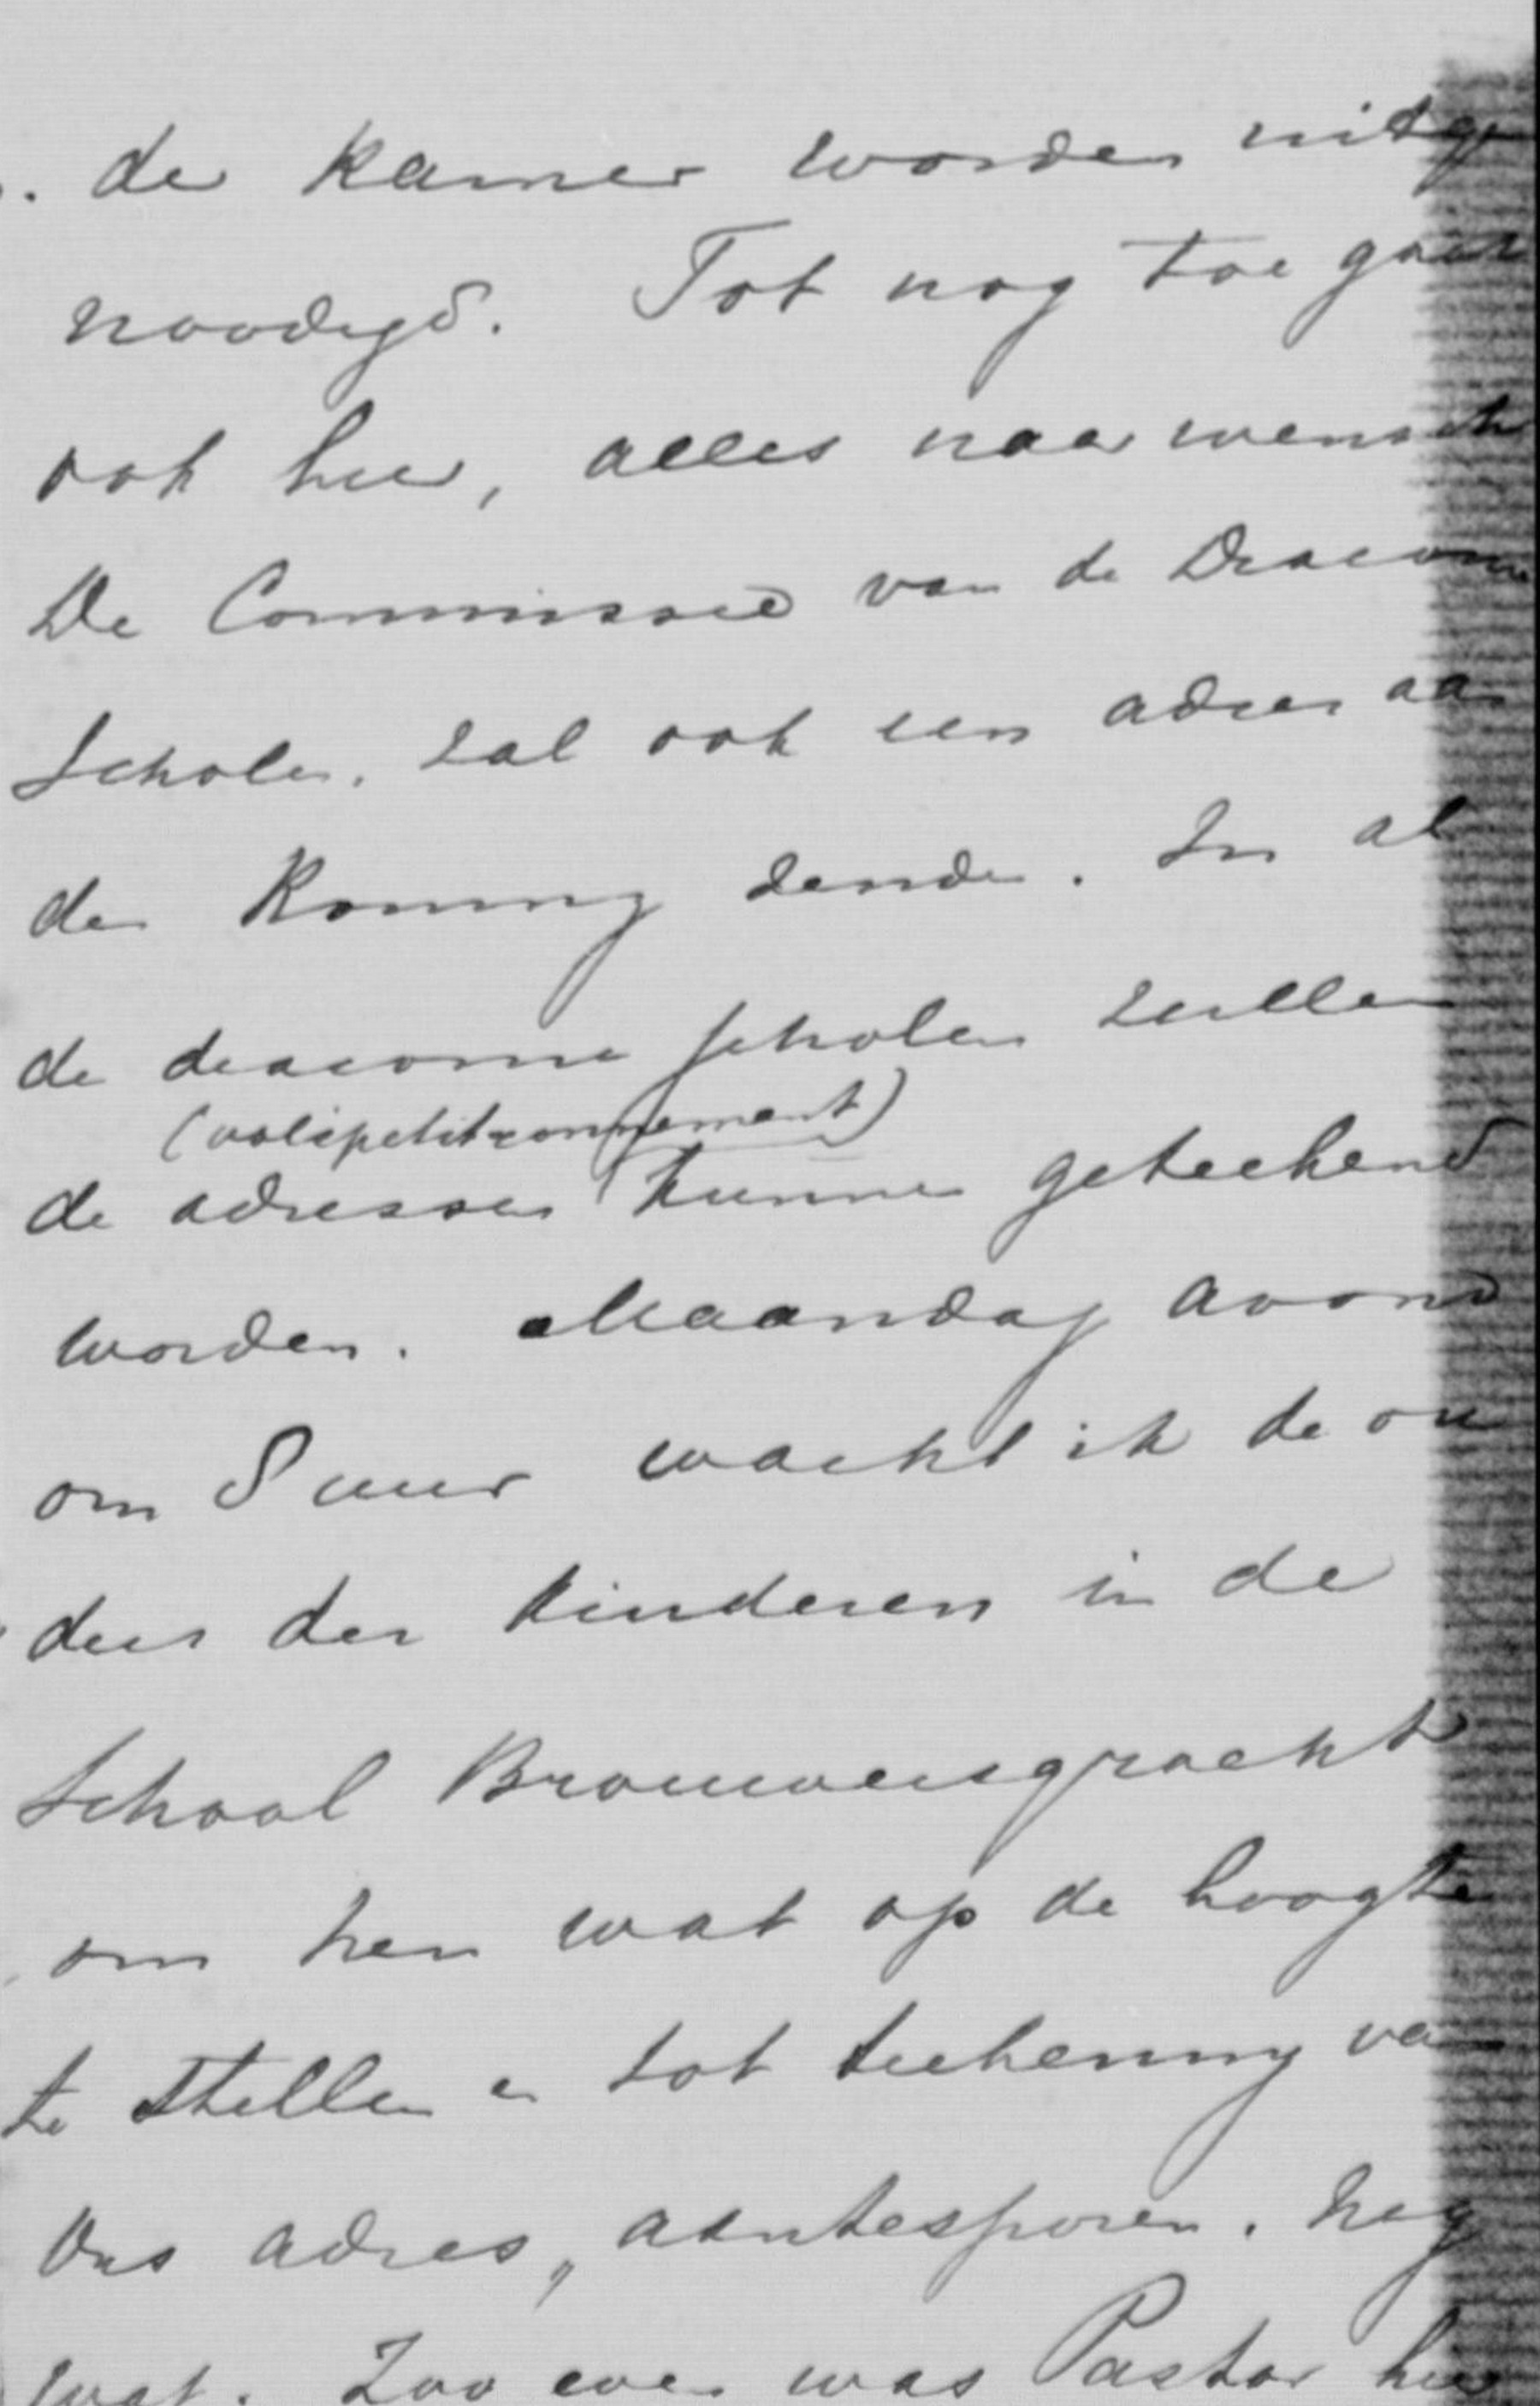 de kamer worden uitge
noodigd. Tot nog toe gaat
ook hier, alles naar wensch
De Commissie van de Diaconie
Scholen. zal ook een adres aan
den Koning zenden. In al
de diaconie scholen zullen
(volkspetitionnement)
de adressen kunnen geteekend
worden. Maandag avond
om 8 uur wacht ik de ou
ders der kinderen in de
School Brouwersgracht
om hen wat op de hoogte
te stellen en tot teekening van
Ons adres, aantesporen. Nog
wat. Zoo even was Pastor hier